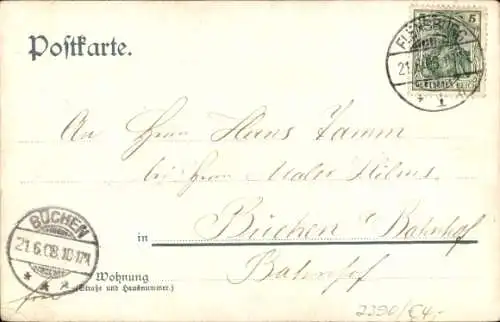 Postkarte.
FLENSBURG
5
21.6.08
DEUTSCHES REICH
* 1
An Herrn Hans Tamm
bei Herrn Maler Hilms
in Büchen Bahnhof
BÜCHEN
21.6.08.10-11V.
* * *
Wohnung
Bahnhof
(Straße und Hausnummer.)
frei
2390/C4,-